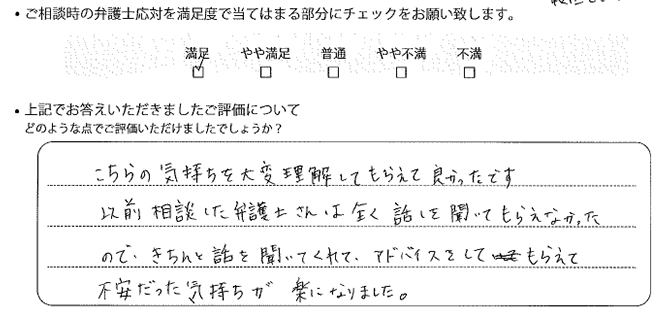 ・ご相談時の弁護士応対を満足度で当てはまる部分にチェックをお願い致します。
満足 やや満足 普通 やや不満 不満
・上記でお答えいただきましたご評価について
どのような点でご評価いただけましたでしょうか？
こちらの気持ちを大変理解してもらえて良かったです
以前相談した弁護士さんは全く話しを聞いてもらえなかった
ので、きちんと話を聞いてくれて、アドバイスをしてもらえて
不安だった気持ちが楽になりました。